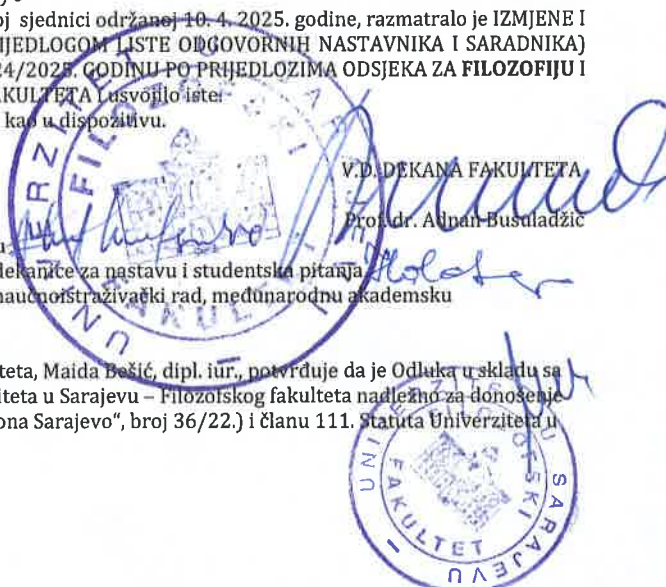 oj sjednici održanoj 10. 4. 2025. godine, razmatralo je IZMJENE I
IJEDLOGOM LISTE ODGOVORNIH NASTAVNIKA I SARADNIKA)
24/2025. GODINU PO PRIJEDLOZIMA ODSJEKA ZA FILOZOFIJU I
AKULTETA I usvojilo iste.
kao u dispozitivu.
V.D. DEKANA FAKULTETA
Prof. dr. Adnan Busuladžić
u:
dekanice za nastavu i studentska pitanja
naučnoistraživački rad, međunarodnu akademsku
teta, Maida Bešić, dipl. iur., potvrđuje da je Odluka u skladu sa
iteta u Sarajevu – Filozofskog fakulteta nadležno za donošenje
ona Sarajevo“, broj 36/22.) i članu 111. Statuta Univerziteta u
UNIVERZITET U SARAJEVU
FILOZOFSKI
FAKULTET